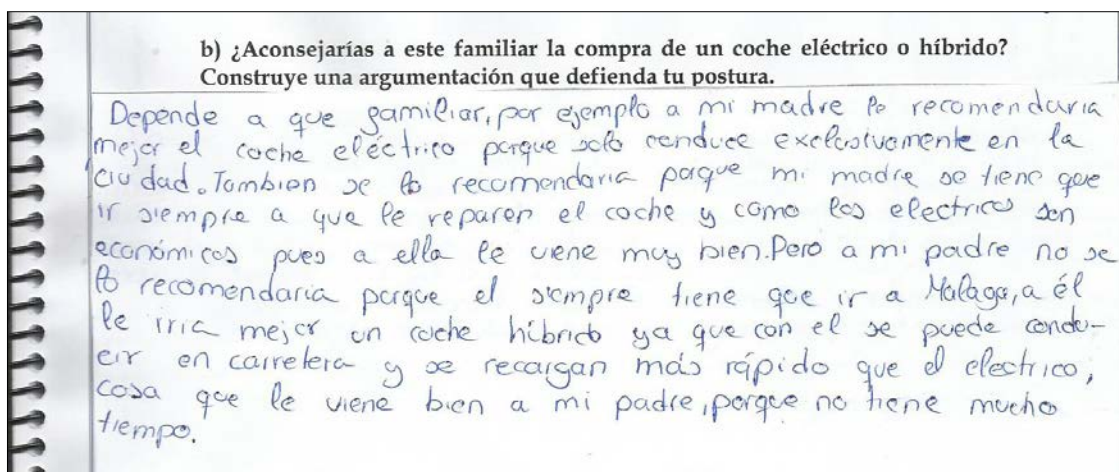 b) ¿Aconsejarías a este familiar la compra de un coche eléctrico o híbrido?
Construye una argumentación que defienda tu postura.
Depende a que gamiliar, por ejemplo a mi madre le recomendaria
mejor el coche eléctrico porque solo conduce exclusivamente en la
ciudad. Tambien se lo recomendaria porque mi madre se tiene que
ir siempre a que le reparen el coche y como los electricos son
económicos pues a ella le viene muy bien. Pero a mi padre no se
lo recomendaria porque el siempre tiene que ir a Malaga, a él
le iria mejor un coche hibrido ya que con el se puede condu-
cir en carretera y se recargan más rápido que el electrico,
cosa que le viene bien a mi padre, porque no tiene mucho
tiempo.